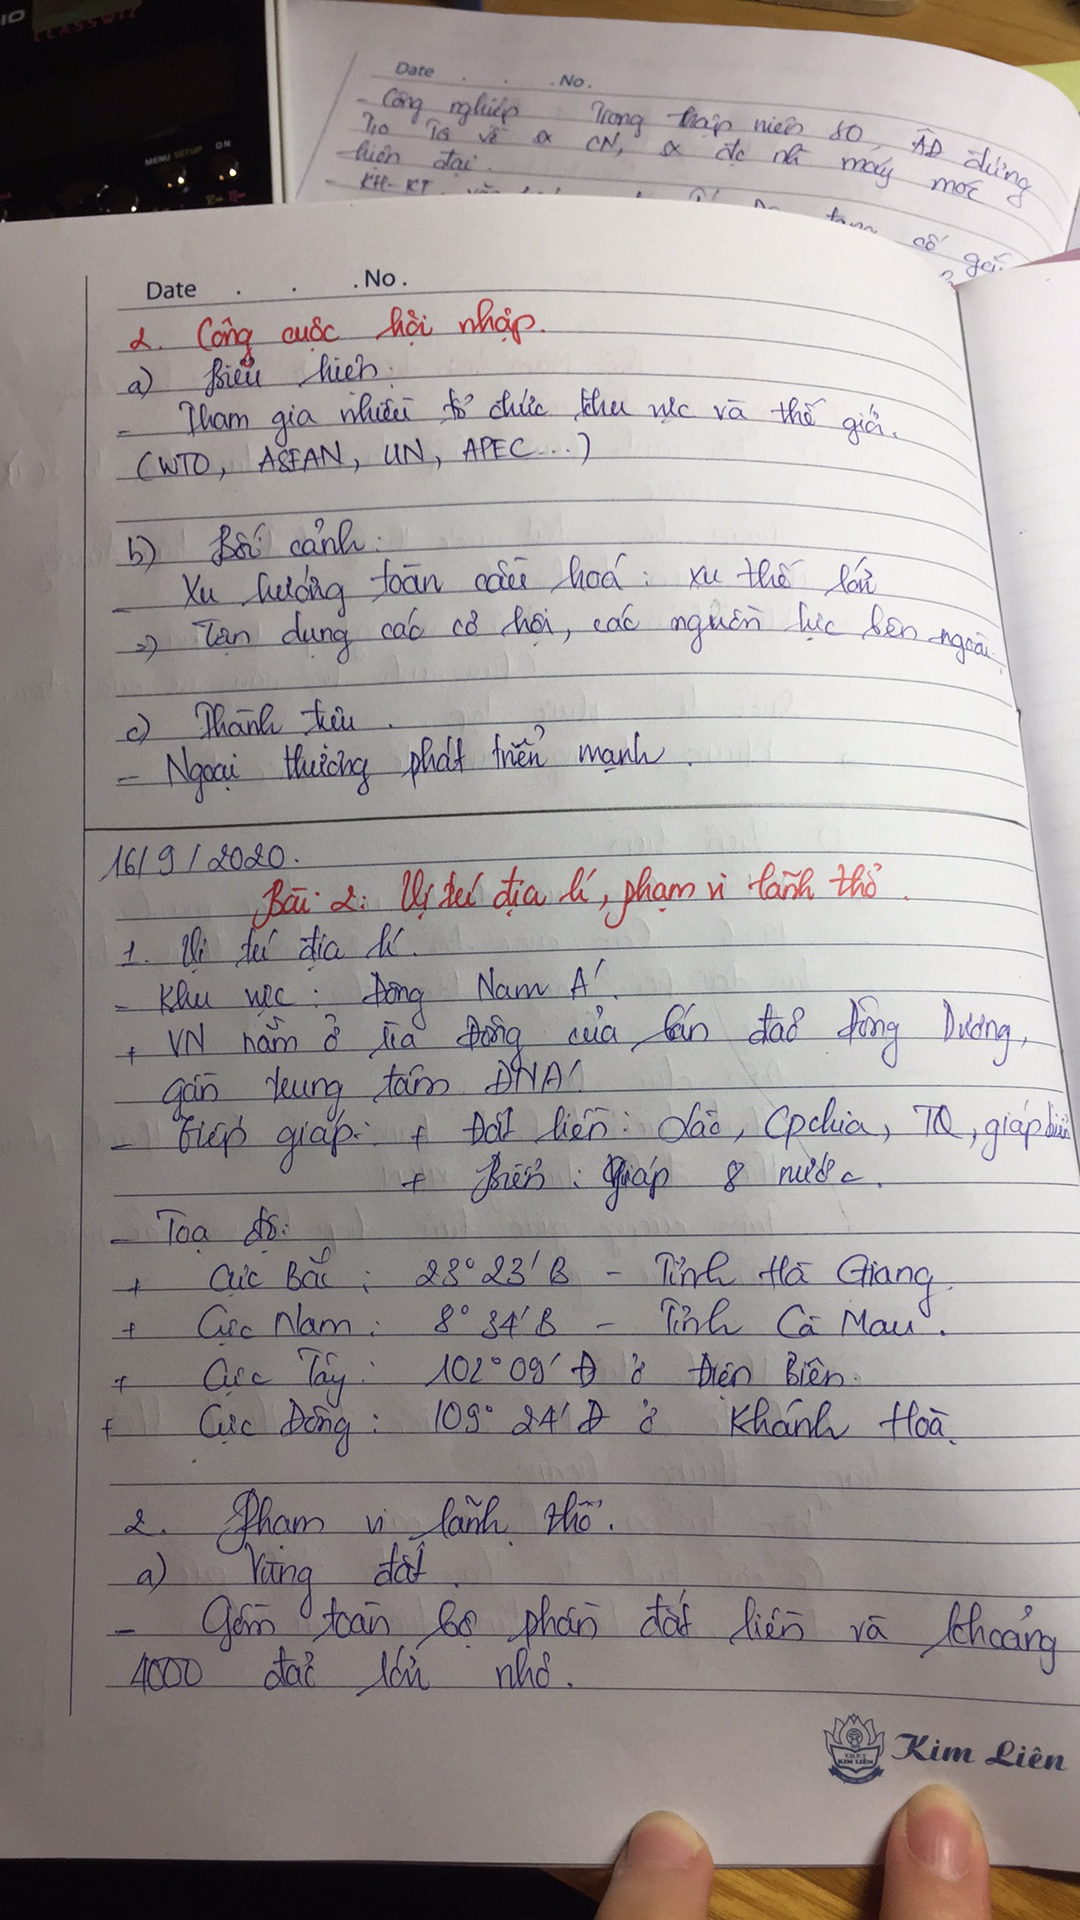 CLASSWIZ
MENU SETUP ON
Date . . .No.
- Công nghiệp : Trong thập niên 80, ÂD đứng
T10 TG về sx CN, sx đc nh máy móc
hiện đại.
- KH-KT
cố gắ
Date . . .No.
2. Công cuộc hội nhập.
a) Biểu hiện:
- Tham gia nhiều tổ chức khu vực và thế giới.
(WTO, ASEAN, UN, APEC...)
b) Bối cảnh:
- Xu hướng toàn cầu hoá : xu thế lớn
=> Tận dụng các cơ hội, các nguồn lực bên ngoài.
c) Thành tựu.
- Ngoại thương phát triển mạnh.
16/9/2020.
Bài 2: Vị trí địa lí, phạm vi lãnh thổ.
1. Vị trí địa lí.
- Khu vực : Đông Nam Á.
+ VN nằm ở rìa Đông của bán đảo Đông Dương,
gần trung tâm ĐNÁ
- Tiếp giáp: + Đất liền: Lào, Cpchia, TQ, giáp biển
+ Biển : Giáp 8 nước.
- Toạ độ:
+ Cực Bắc : 23°23'B - Tỉnh Hà Giang.
+ Cực Nam : 8°34'B - Tỉnh Cà Mau.
+ Cực Tây : 102°09'Đ ở Điện Biên.
+ Cực Đông : 109°24'Đ ở Khánh Hoà.
2. Phạm vi lãnh thổ.
a) Vùng đất.
- Gồm toàn bộ phần đất liền và khoảng
4000 đảo lớn nhỏ.
T.H.P.T
KIM LIÊN
Kim Liên